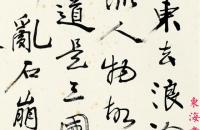 東海
東去浪
流人物故
道是三國
亂石崩